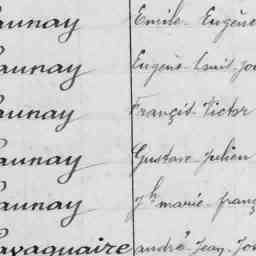 aunay Emile Eugène
aunay Eugène Louis Jo
aunay François Victor
aunay Gustave Julien
aunay Jh marie franç
avaquaire andré Jean Jo